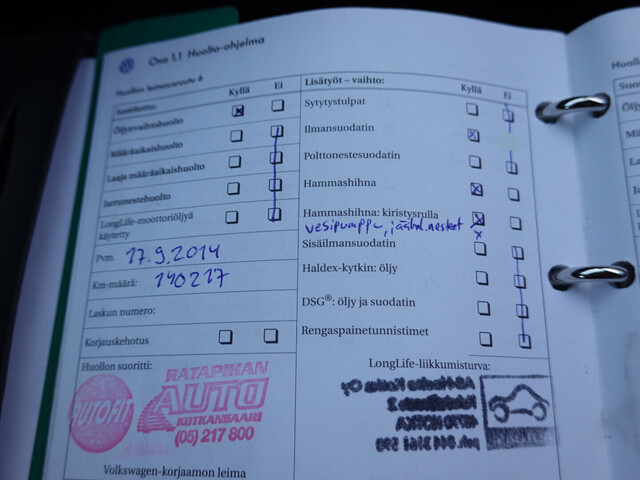 Osa 1.1 Huolto-ohjelma
Huollon leimausruutu 6
Kyllä Ei
Suoritettu:
Öljynvaihtohuolto
Määräaikaishuolto
Laaja määräaikaishuolto
Jarrunestehuolto
LongLife-moottoriöljyä
käytetty
Pvm. 17.9.2014
Km-määrä: 190217
Laskun numero:
Korjauskehotus
Huollon suoritti:
AUTOFIT
RATAPIHAN
AUTO
KOTKANSAARI
(05) 217 800
Volkswagen-korjaamon leima
Lisätyöt – vaihto:
Kyllä Ei
Sytytystulpat
Ilmansuodatin
Polttonestesuodatin
Hammashihna
Hammashihna: kiristysrulla
vesipumppu, jäähd.nesteet
Sisäilmansuodatin
Haldex-kytkin: öljy
DSG®: öljy ja suodatin
Rengaspainetunnistimet
LongLife-liikkumisturva: